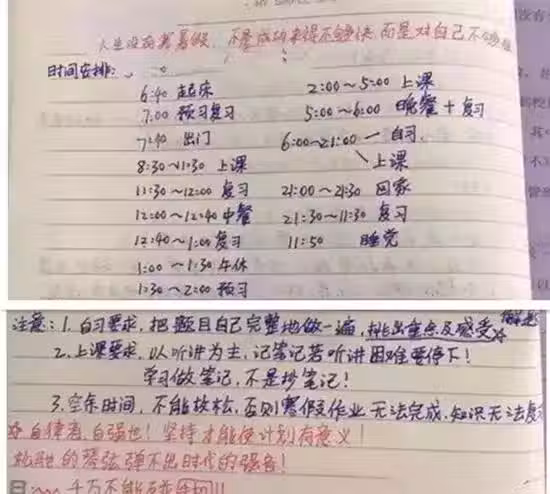 人生没有寒暑假,不是成功来得不够快,而是对自己不够狠
时间安排:
6:40 起床
7:00 预习复习
7:40 出门
8:30~11:30 上课
11:30~12:00 复习
12:00~12:40 中餐
12:40~1:00 复习
1:00~1:30 午休
1:30~2:00 预习
2:00~5:00 上课
5:00~6:00 晚餐+复习
6:00~21:00 — 自习
上课
21:00~21:30 回家
21:30~11:30 复习
11:50 睡觉
注意:1. 自习要求,把题目自己完整地做一遍,挑出重点及感受
2. 上课要求,以听讲为主,记笔记若听讲困难要停下!
学习做笔记,不是抄笔记!
3. 空余时间,不能放松,否则寒假作业无法完成,知识无法复
☆自律者,自强也!坚持才能使计划有意义!
松弛的琴弦弹不出时代的强音!
千万不能